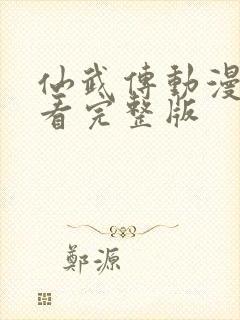 仙武傳動漫
看完整版
鄭源